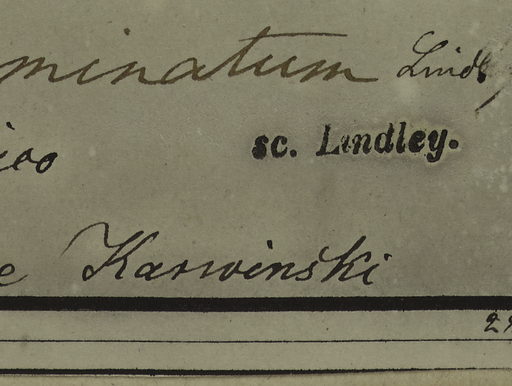 minatum Lindl
ico
sc. Lindley.
e Karwinski